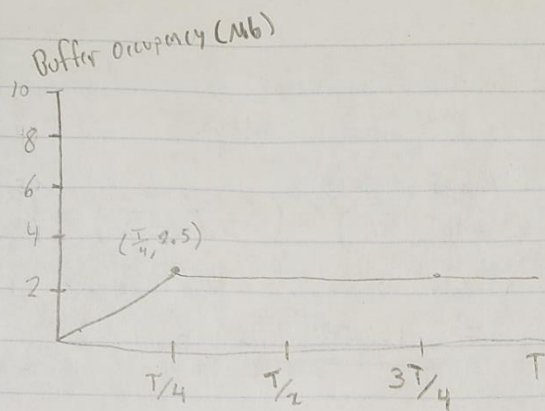 Buffer Occupancy (Mb)
10
8
6
4
(T/4, 2.5)
2
T/4
T/2
3T/4
T